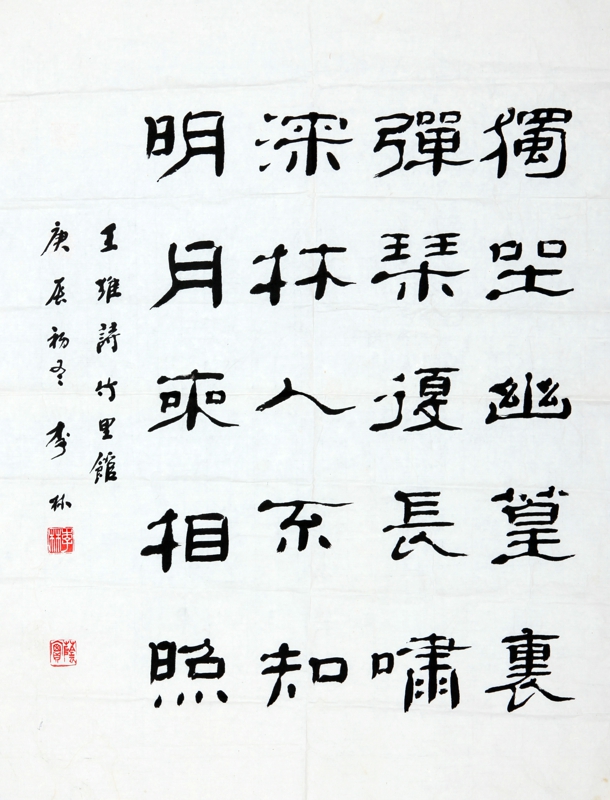 獨坐幽篁裏
彈琴復長嘯
深林人不知
明月來相照
王維詩竹里館
庚辰初冬 李林
李林